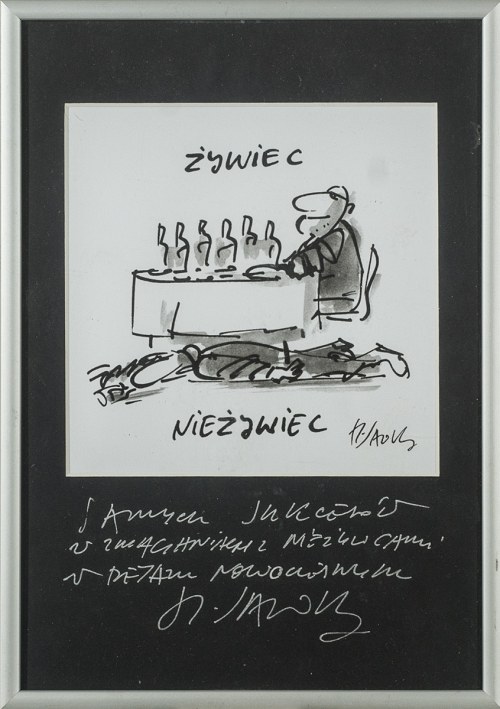 ŻYWIEC
NIEŻYWIEC
H. SAWKA
SAMYCH SUKCESÓW
W ZMAGANIACH Z NIEŻYWCAMI
W
H. SAWKA